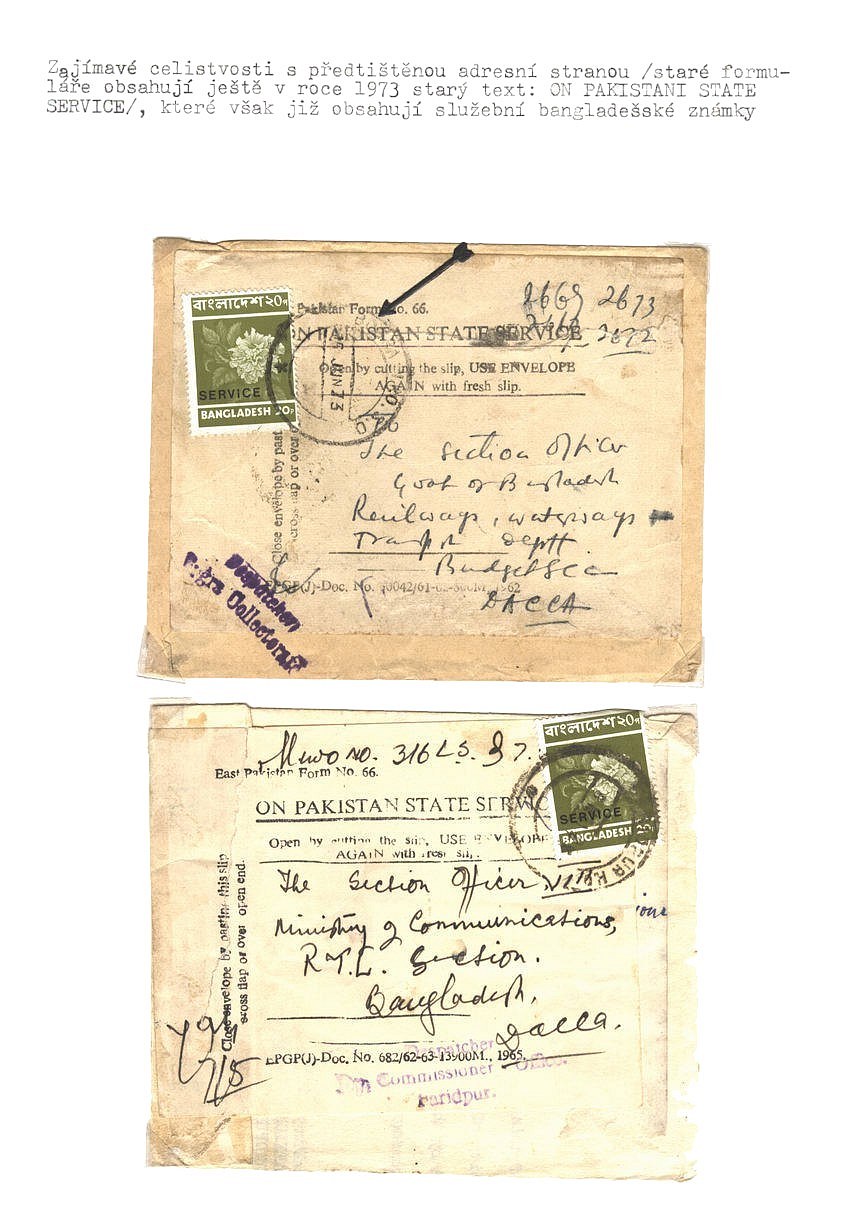 Zajímavé celistvosti s předtištěnou adresní stranou /staré formu-
láře obsahují ještě v roce 1973 starý text: ON PAKISTANI STATE
SERVICE/, které však již obsahují služební bangladešské známky
বাংলাদেশ ২০প
SERVICE
BANGLADESH 20P
Pakistan Form No. 66.
2669 2673
2672
ON PAKISTAN STATE SERVICE
Open by cutting the slip, USE ENVELOPE
AGAIN with fresh slip.
JUN 73
Close envelope by past
cross flap or over o
The Section Officer
Govt of Bangladesh
Railways, waterways
Deptt
Budget Sec
DACCA
EPGP(J)-Doc. No. 1962
Despatcher
Collectorate
Memo No. 316 L.S.
বাংলাদেশ ২০প
SERVICE
BANGLADESH 20P
East Pakistan Form No. 66.
ON PAKISTAN STATE SERVIC
Open by cutting the slip, USE ENVELOPE
AGAIN with fresh slip.
Close envelope by pasting this slip
cross flap or over open end.
The Section Officer
Ministry of Communications,
R.T.L. Section.
Bangladesh.
Dacca.
EPGP(J)-Doc. No. 682/62-63-13900M., 1965.
Despatcher
Commissioner Office.
Faridpur.